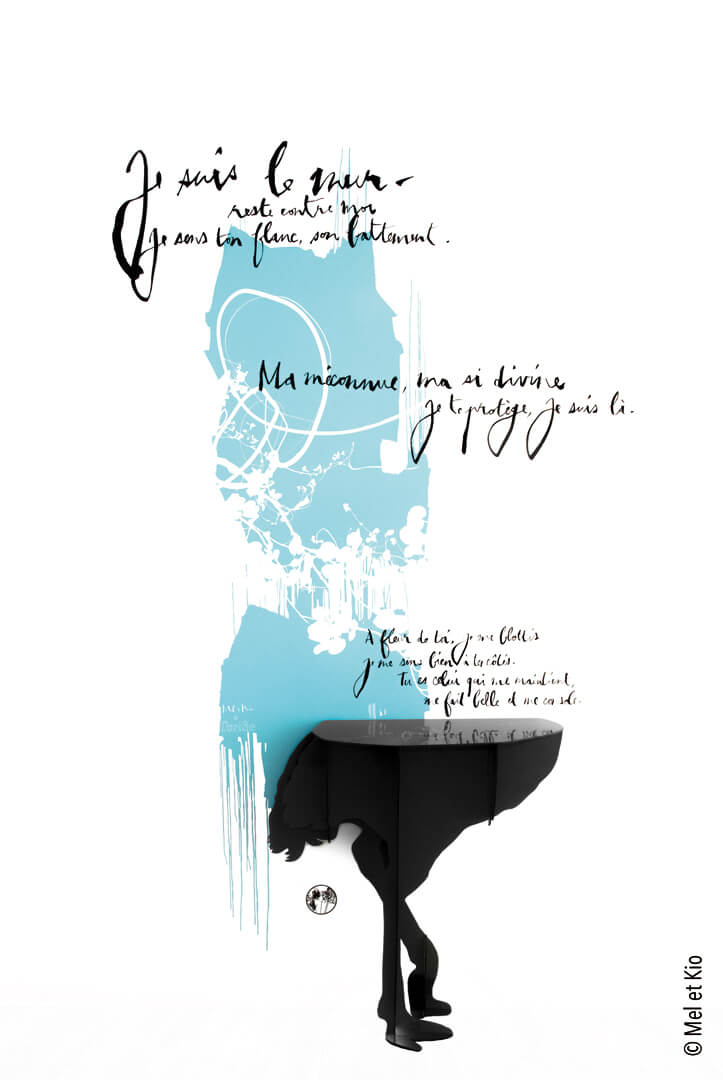 Je suis le mur -
reste contre moi
Je sens ton flanc, son battement.
Ma méconnue, ma si divine
Je te protège, Je suis là.
A fleur de toi, je me blottis
je me sens bien à tes côtés.
Tu es celui qui me maintient,
me fait belle et me console.
© Mel et Kio